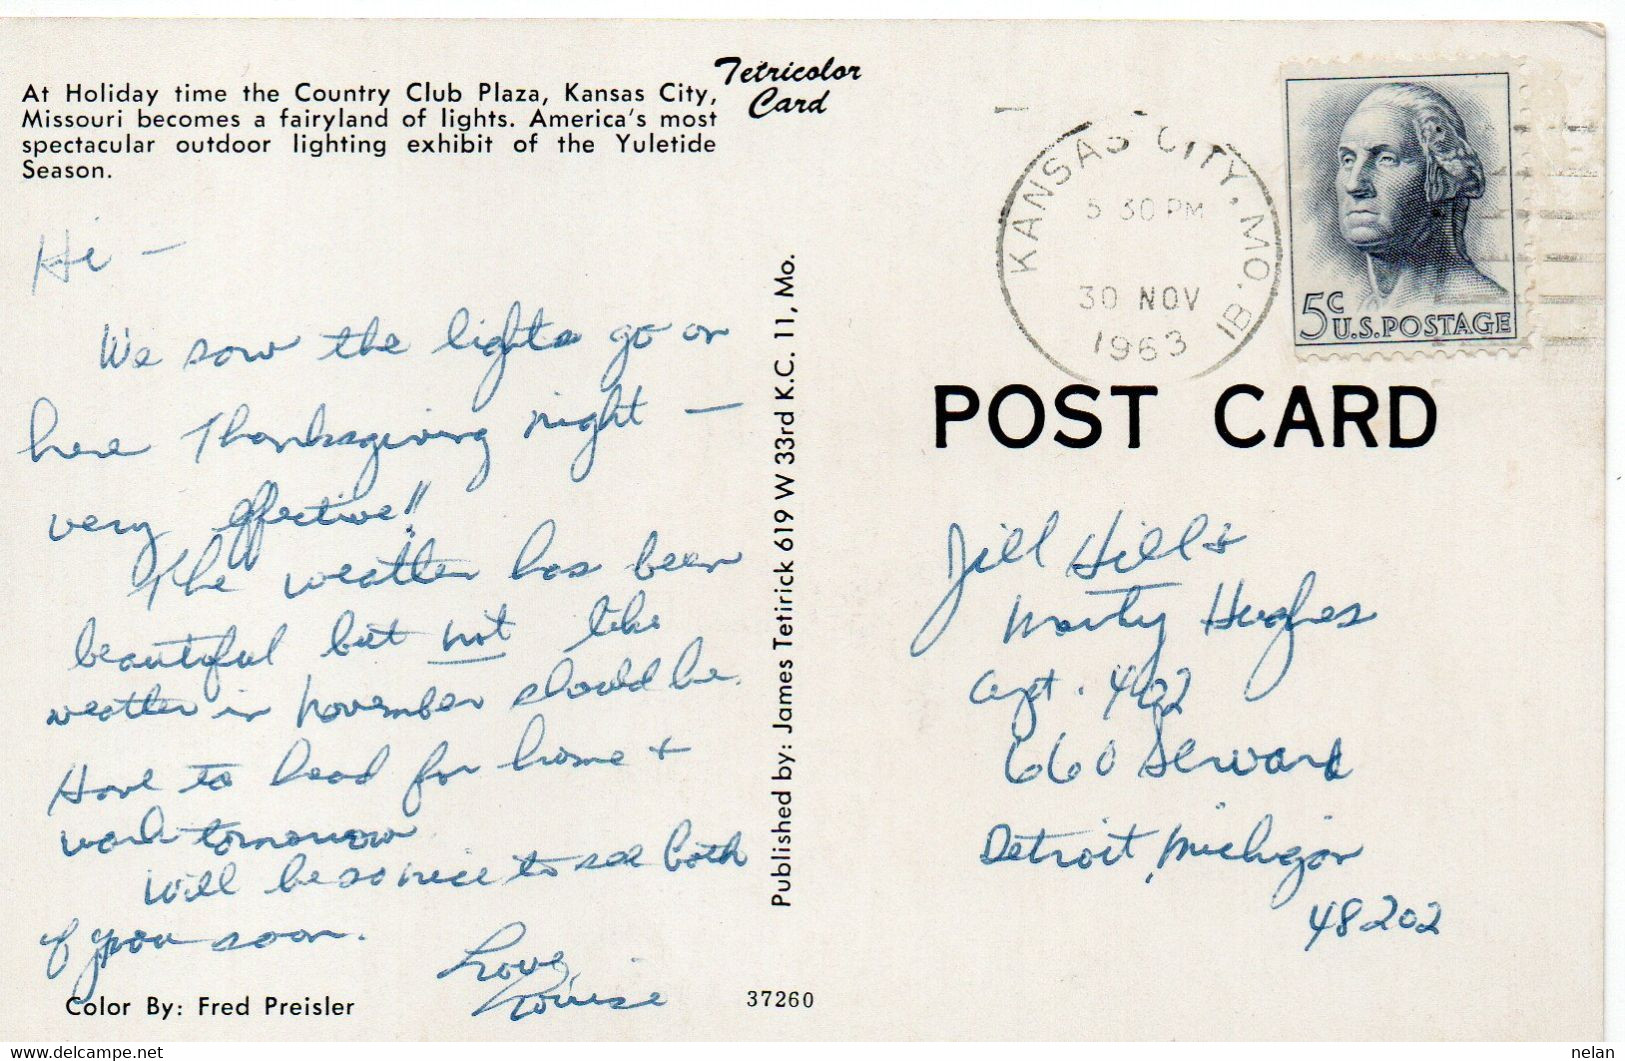 At Holiday time the Country Club Plaza, Kansas City,
Missouri becomes a fairyland of lights. America's most
spectacular outdoor lighting exhibit of the Yuletide
Season.
Tetricolor
Card
Hi –
We saw the lights go on
here Thanksgiving night –
very effective!!
The weather has been
beautiful but not like
weather in November should be.
Have to head for home +
work tomorrow
Will be so nice to see both
of you soon.
Love,
Louise
Color By: Fred Preisler
37260
Published by: James Tetirick 619 W 33rd K.C. 11, Mo.
KANSAS CITY, MO. 1B
5 30 PM
30 NOV
1963
5c
U.S. POSTAGE
POST CARD
Jill Hill &
Marty Hughes
Apt. 402
660 Seward
Detroit, Michigan
48202
nelan
www.delcampe.net